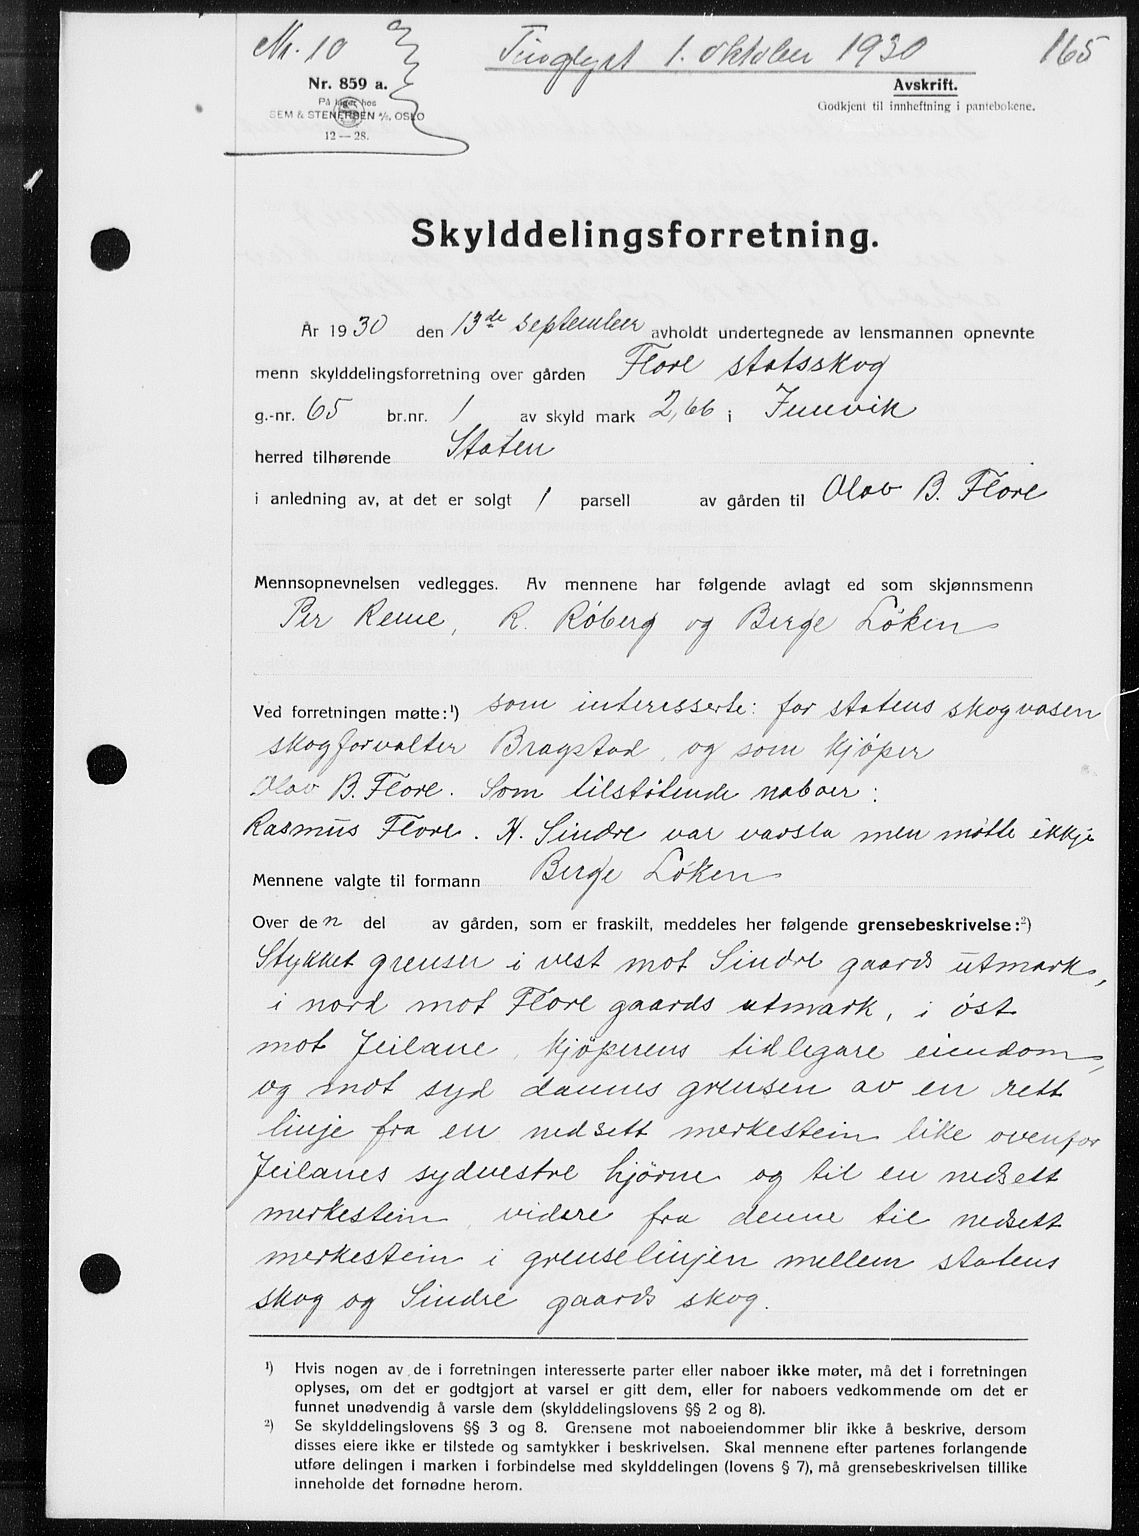 Nr. 10 Tinglyst 1. oktober 1930 165
Nr. 859 a. Avskrift.
På lager hos Godkjent til innheftning i pantebokene.
SEM & STENERSEN A/S, OSLO
12 — 28.
Skylddelingsforretning.
År 1930 den 13de september avholdt undertegnede av lensmannen opnevnte
menn skylddelingsforretning over gården Flore statsskog
g.-nr. 65 br.nr. 1 av skyld mark 2,66 i Innvik
herred tilhørende Staten
i anledning av, at det er solgt 1 parsell av gården til Olav B. Flore
Mennsopnevnelsen vedlegges. Av mennene har følgende avlagt ed som skjønnsmenn
Per Reme, R. Røberg og Berge Løken
Ved forretningen møtte:¹) som interesserte: for statens skogvesen
skogforvalter Bragstad, og som kjøper
Olav B. Flore. Som tilstøtende naboer:
Rasmus Flore. H. Sindre var varsla men møtte ikkje
Mennene valgte til formann Berge Løken
Over den del av gården, som er fraskilt, meddeles her følgende grensebeskrivelse:²)
Stykket grenser i vest mot Sindre gaards utmark,
i nord mot Flore gaards utmark, i øst
mot Jeilane, kjøperens tidligare eiendom,
og mot syd dannes grensen av en rett
linje fra en nedsett merkestein like ovenfor
Jeilanes sydvestre hjørne og til en nedsett
merkestein, videre fra denne til nedsett
merkestein i grenselinjen mellem statens
skog og Sindre gaards skog.
¹) Hvis nogen av de i forretningen interesserte parter eller naboer ikke møter, må det i forretningen
oplyses, om det er godtgjort at varsel er gitt dem, eller for naboers vedkommende om det er
funnet unødvendig å varsle dem (skylddelingslovens §§ 2 og 8).
²) Se skylddelingslovens §§ 3 og 8. Grensene mot naboeiendommer blir ikke å beskrive, dersom
disses eiere ikke er tilstede og samtykker i beskrivelsen. Skal mennene efter partenes forlangende
utføre delingen i marken i forbindelse med skylddelingen (lovens § 7), må grensebeskrivelsen tillike
inneholde det fornødne herom.